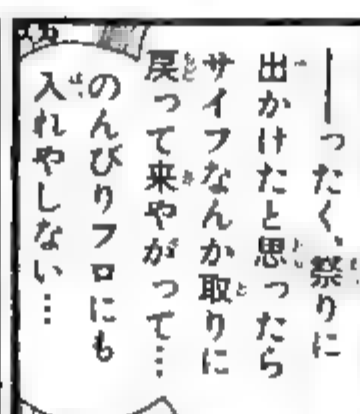 ──ったく、祭りに
出かけたと思ったら
サイフなんか取りに
戻って来やがって…
のんびりフロにも
入れやしない…